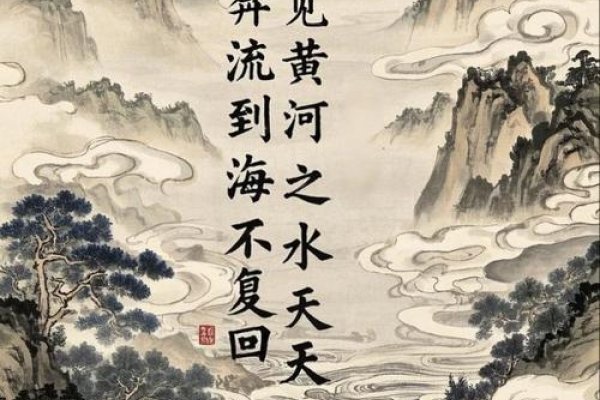 见黄河之水天天
奔流到海不复回